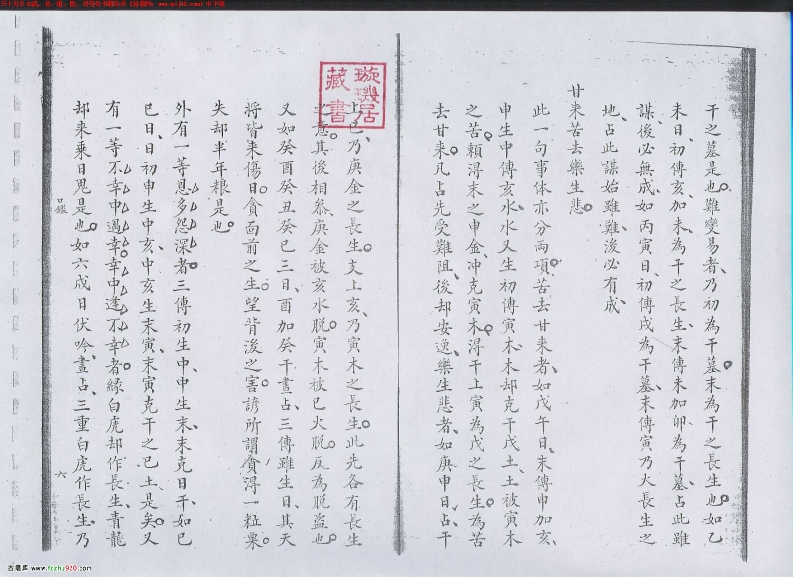 干之墓是也。難變易者、乃初為干墓末為干之長生也。如乙
未日、初傳亥、加未為干之長生、末傳未加卯為干墓、占此雖
謀後必無成、如丙寅日、初傳戌為干墓、末傳寅乃火長生之
地、占此謀始雖難後必有成、
甘來苦去樂生悲。
此一句事体亦分兩項、苦去甘來者、如戊午日、末傳申加亥、
申生中傳亥水、水又生初傳寅木、木却克干戊土、土被寅木
之苦。賴得末之申金、冲克寅木。得干上寅為戊之長生。為苦
去甘來。凡占先受難阻、後却安逸、樂生悲者、如庚申日、占干
上巳、乃庚金之長生。支上亥、乃寅木之長生。此先各有長生
之意。其後相參。庚金被亥水脱。寅木被巳火脱。反為脱盜也。
又如癸酉癸丑癸巳三日、酉加癸干晝占、三傳雖生日、其天
將皆來傷日。貪面前之生。望背後之害。諺所謂貪得一粒粟。
失却半年粮是也。
外有一等恩多怨深者、三傳初生中、中生末、末克日干、如己
巳日、日初申生中亥、中亥生末寅、末寅克干之己土是矣。又
有一等不幸中遇幸。幸中逢不幸者。緣白虎却作長生、青龍
却來乘日鬼是也。如六戊日伏吟、晝占、三重白虎作長生。乃
口鑑
六
璇璣居藏書
古籍库 www.fczhu920.com